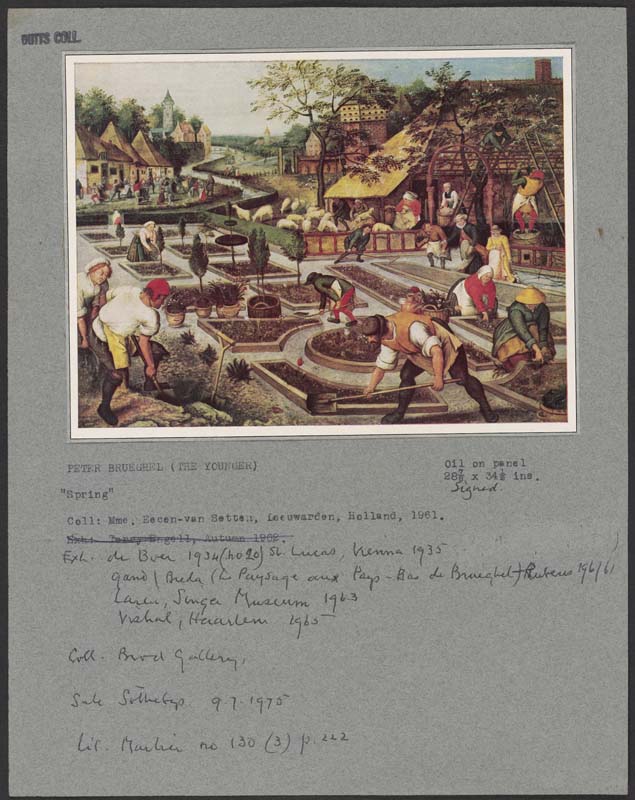 GUTTS COLL.
PETER BRUEGHEL (THE YOUNGER)
Oil on panel
28⅞ x 34½ ins.
Signed.
"Spring"
Coll: Mme. Eecen-van Setten, Leeuwarden, Holland, 1961.
Exh: Engell, Autumn 1962.
Exh. de Boer 1934 (no 20) St. Lucas, Vienna 1935
Gand / Breda (Le Paysage aux Pays-Bas de Brueghel à Rubens 1961/61
Laren, Singer Museum 1963
Vishal, Haarlem 1965
Coll. Brod Gallery,
Sale Sothebys 9.7.1975
Lit. Marlier no 130 (3) p. 222